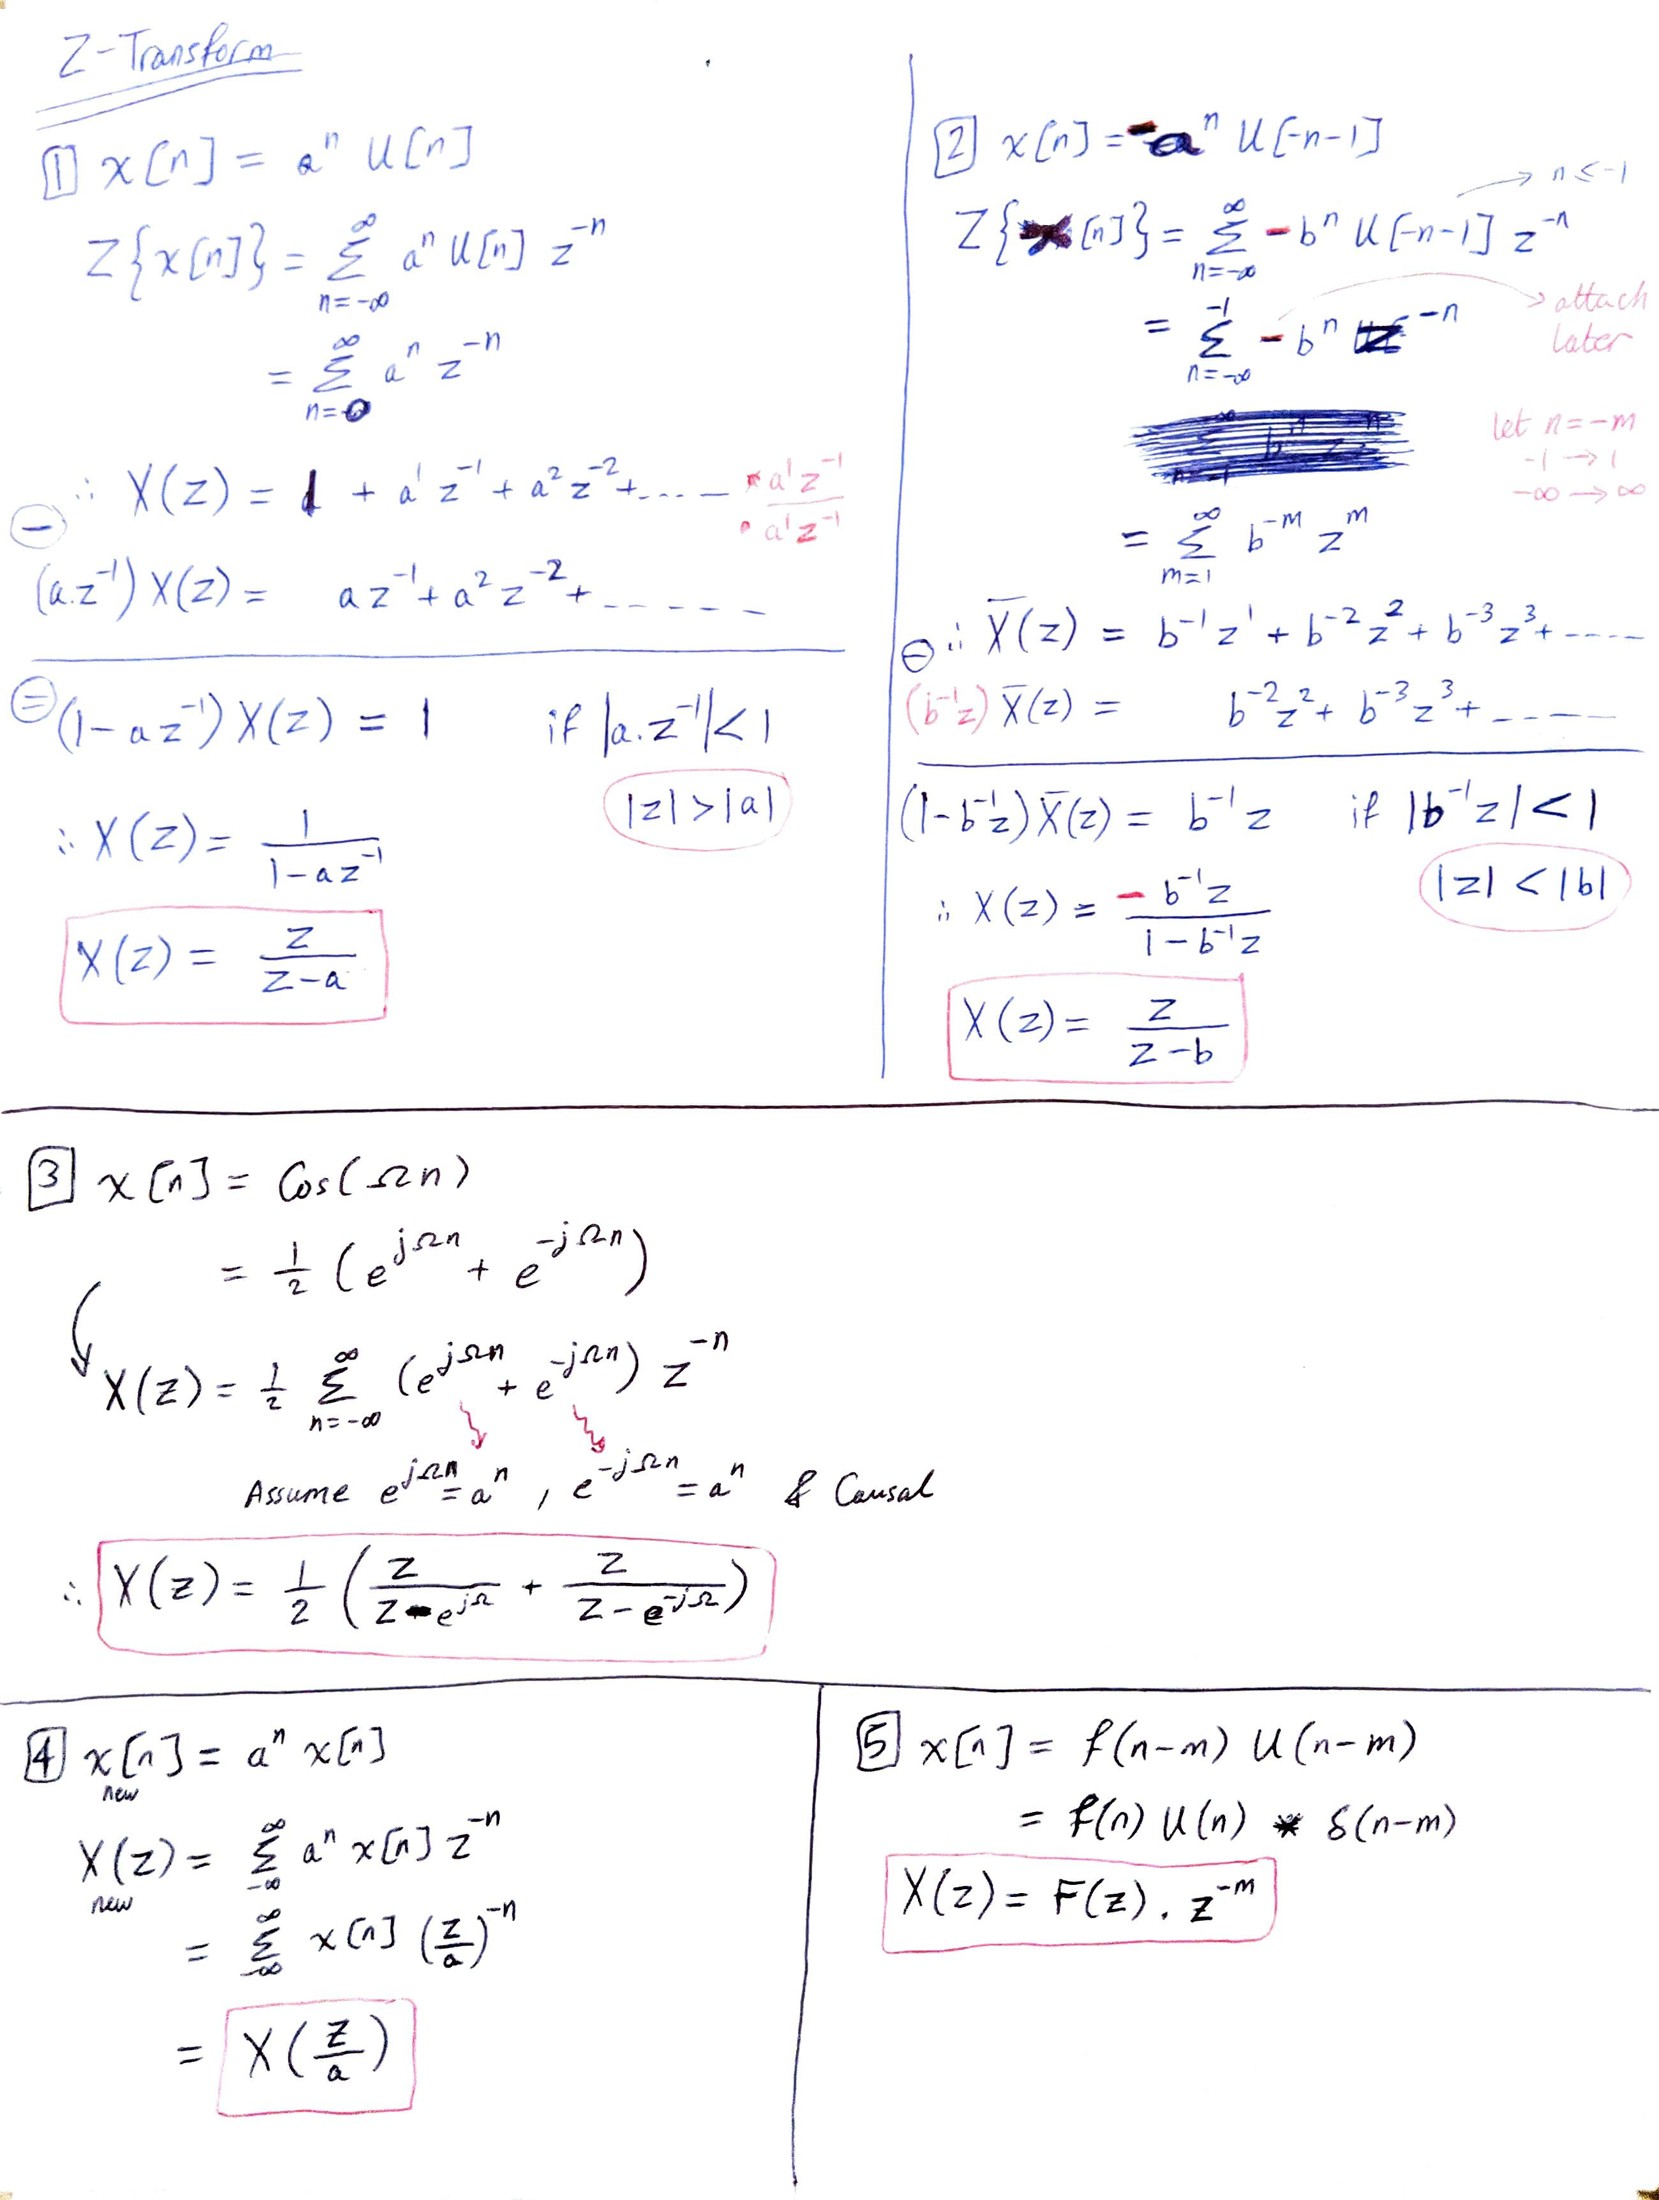 Z-Transform
1 x[n] = aⁿ U[n]
Z{x[n]} = Σ_{n=-∞}^{∞} aⁿ U[n] z⁻ⁿ
= Σ_{n=0}^{∞} aⁿ z⁻ⁿ
∴ X(z) = 1 + a¹ z⁻¹ + a² z⁻² + ....
* a¹z⁻¹
* a¹z⁻¹
(a.z⁻¹) X(z) = az⁻¹ + a² z⁻² + ------
(1-az⁻¹) X(z) = 1 if |a.z⁻¹| < 1
|z| > |a|
∴ X(z) = 1 / (1-az⁻¹)
X(z) = z / (z-a)
2 x[n] = -aⁿ U[-n-1]
→ n ≤ -1
Z{x[n]} = Σ_{n=-∞}^{∞} -bⁿ U[-n-1] z⁻ⁿ
= Σ_{n=-∞}^{-1} -bⁿ z⁻ⁿ
→ attach
later
let n = -m
-1 → 1
-∞ → ∞
= Σ_{m=1}^{∞} b⁻ᵐ zᵐ
∴ X̄(z) = b⁻¹z¹ + b⁻²z² + b⁻³z³ + ----
(b⁻¹z) X̄(z) = b⁻²z² + b⁻³z³ + ----
(1-b⁻¹z) X̄(z) = b⁻¹z if |b⁻¹z| < 1
|z| < |b|
∴ X(z) = - b⁻¹z / (1-b⁻¹z)
X(z) = z / (z-b)
3 x[n] = Cos(Ωn)
= 1/2 (e^{jΩn} + e^{-jΩn})
X(z) = 1/2 Σ_{n=-∞}^{∞} (e^{jΩn} + e^{-jΩn}) z⁻ⁿ
Assume e^{jΩn} = aⁿ , e^{-jΩn} = aⁿ & Causal
∴ X(z) = 1/2 ( z / (z-e^{jΩ}) + z / (z-e^{-jΩ}) )
4 x[n] = aⁿ x[n]
new
X(z) = Σ_{-∞}^{∞} aⁿ x[n] z⁻ⁿ
new
= Σ_{-∞}^{∞} x[n] (z/a)⁻ⁿ
= X(z/a)
5 x[n] = f(n-m) U(n-m)
= f(n) U(n) * δ(n-m)
X(z) = F(z) . z⁻ᵐ